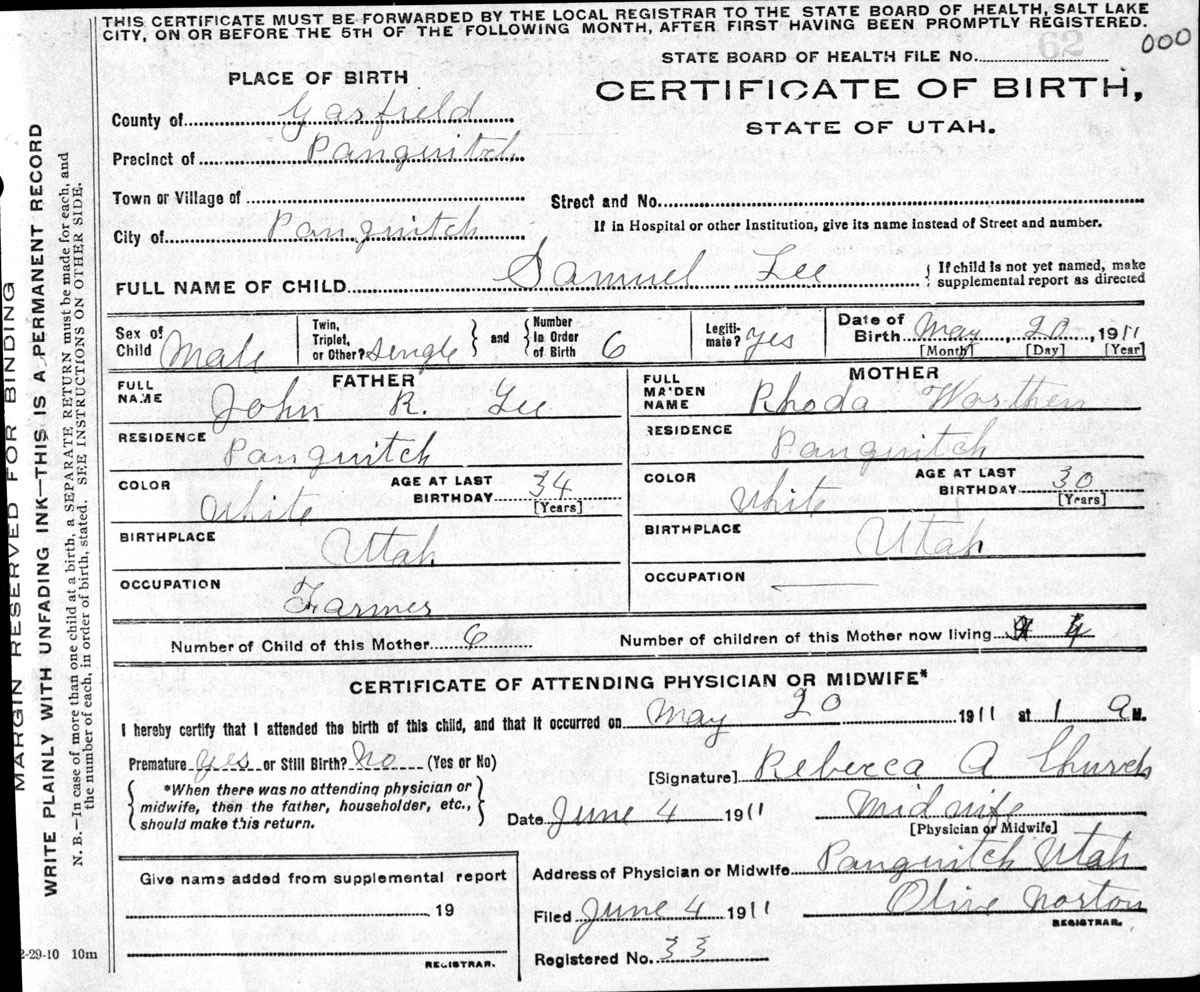 THIS CERTIFICATE MUST BE FORWARDED BY THE LOCAL REGISTRAR TO THE STATE BOARD OF HEALTH, SALT LAKE
CITY, ON OR BEFORE THE 5TH OF THE FOLLOWING MONTH, AFTER FIRST HAVING BEEN PROMPTLY REGISTERED.
62
000
STATE BOARD OF HEALTH FILE No.
PLACE OF BIRTH
CERTIFICATE OF BIRTH,
STATE OF UTAH.
County of Garfield
Precinct of Panguitch
Town or Village of
Street and No.
City of Panguitch
If in Hospital or other Institution, give its name instead of Street and number.
FULL NAME OF CHILD Samuel Lee
{ If child is not yet named, make
supplemental report as directed
Sex of Child Male
Twin, Triplet, or Other? Single } and { Number in Order of Birth 6
Legiti-mate? Yes
Date of Birth May, 20, 1911
[Month] [Day] [Year]
FATHER
FULL NAME John R. Lee
RESIDENCE Panguitch
COLOR White
AGE AT LAST BIRTHDAY 34 [Years]
BIRTHPLACE Utah
OCCUPATION Farmer
MOTHER
FULL MAIDEN NAME Rhoda Worthen
RESIDENCE Panguitch
COLOR White
AGE AT LAST BIRTHDAY 30 [Years]
BIRTHPLACE Utah
OCCUPATION
Number of Child of this Mother 6
Number of children of this Mother now living
CERTIFICATE OF ATTENDING PHYSICIAN OR MIDWIFE*
I hereby certify that I attended the birth of this child, and that it occurred on May 20 1911 at 1 a M.
Premature yes or Still Birth? No (Yes or No)
[Signature] Rebecca A Church
{ *When there was no attending physician or
midwife, then the father, householder, etc.,
should make this return. }
Date June 4 1911
Midwife
[Physician or Midwife]
Address of Physician or Midwife Panguitch Utah
Give name added from supplemental report
19
REGISTRAR.
Filed June 4 1911 Olive Norton
REGISTRAR.
Registered No. 33
2-29-10 10m
MARGIN RESERVED FOR BINDING
WRITE PLAINLY WITH UNFADING INK—THIS IS A PERMANENT RECORD
N. B.—In case of more than one child at a birth, a SEPARATE RETURN must be made for each, and
the number of each, in order of birth, stated. SEE INSTRUCTIONS ON OTHER SIDE.